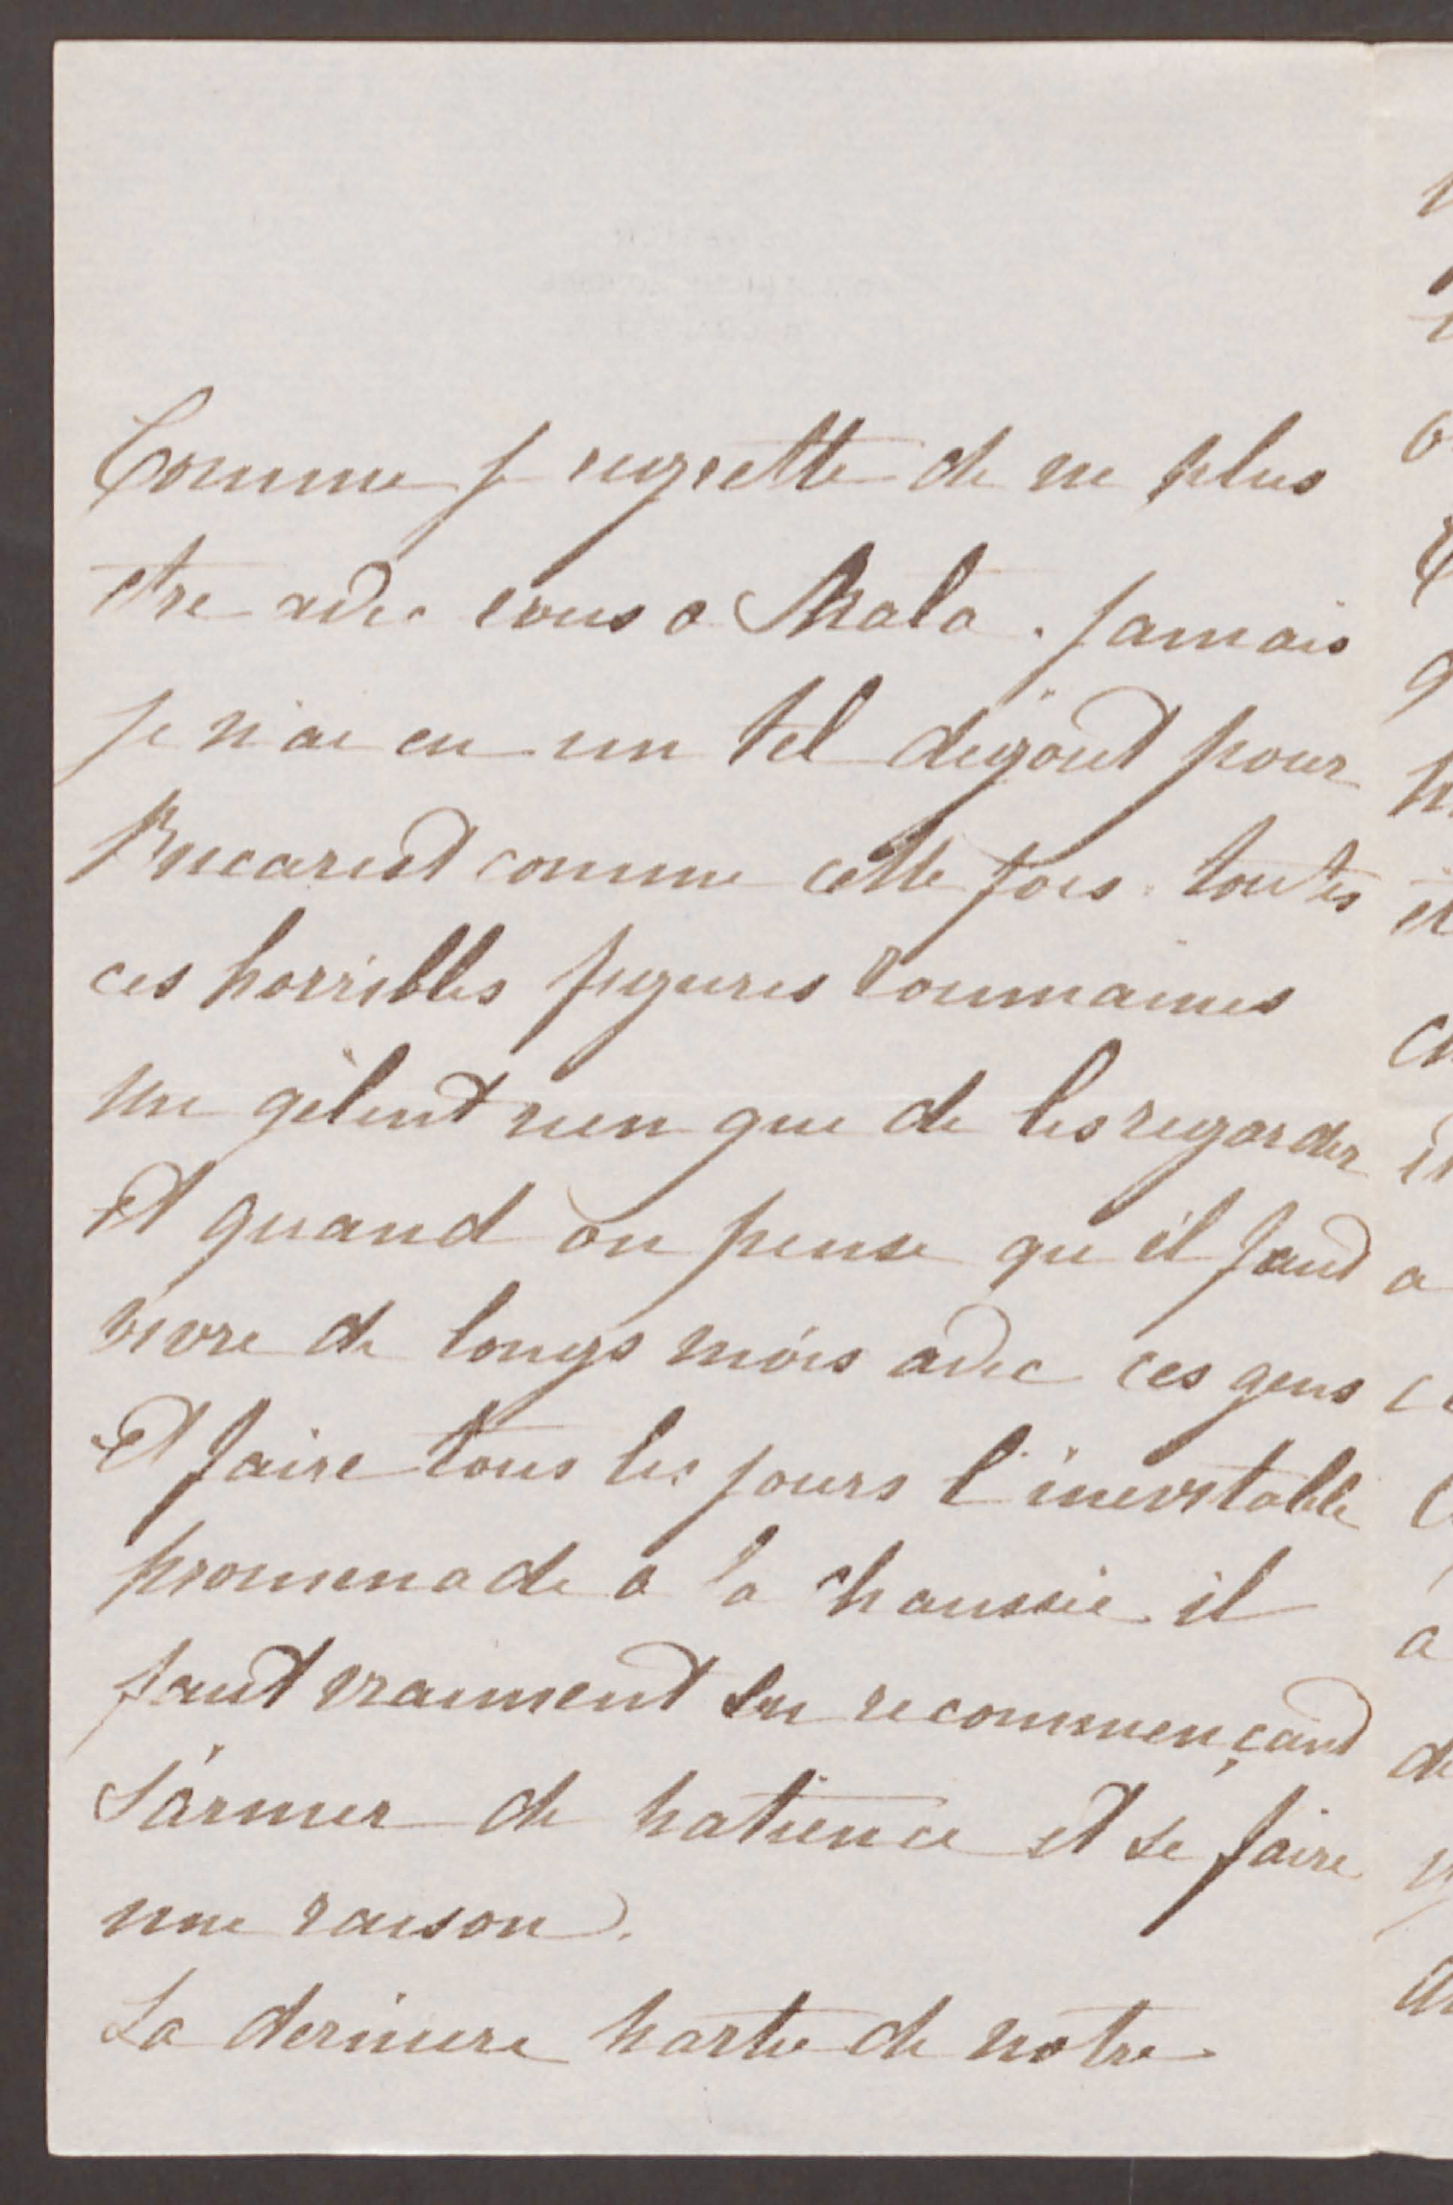 Comme je regrette de ne plus
etre avec vous a Skala. Jamais
je n'ai eu un tel degout pour
Bucarest comme cette fois. toutes
ces horribles figures roumaines
me gelent rien que de les regarder
et quand on pense qu'il faut
vivre de longs mois avec ces gens
et faire tous les jours l'inevitable
promenade a la chaussée il
faut vraiment en recommençant
s'armer de patience et se faire
une raison.
La derniere partie de notre